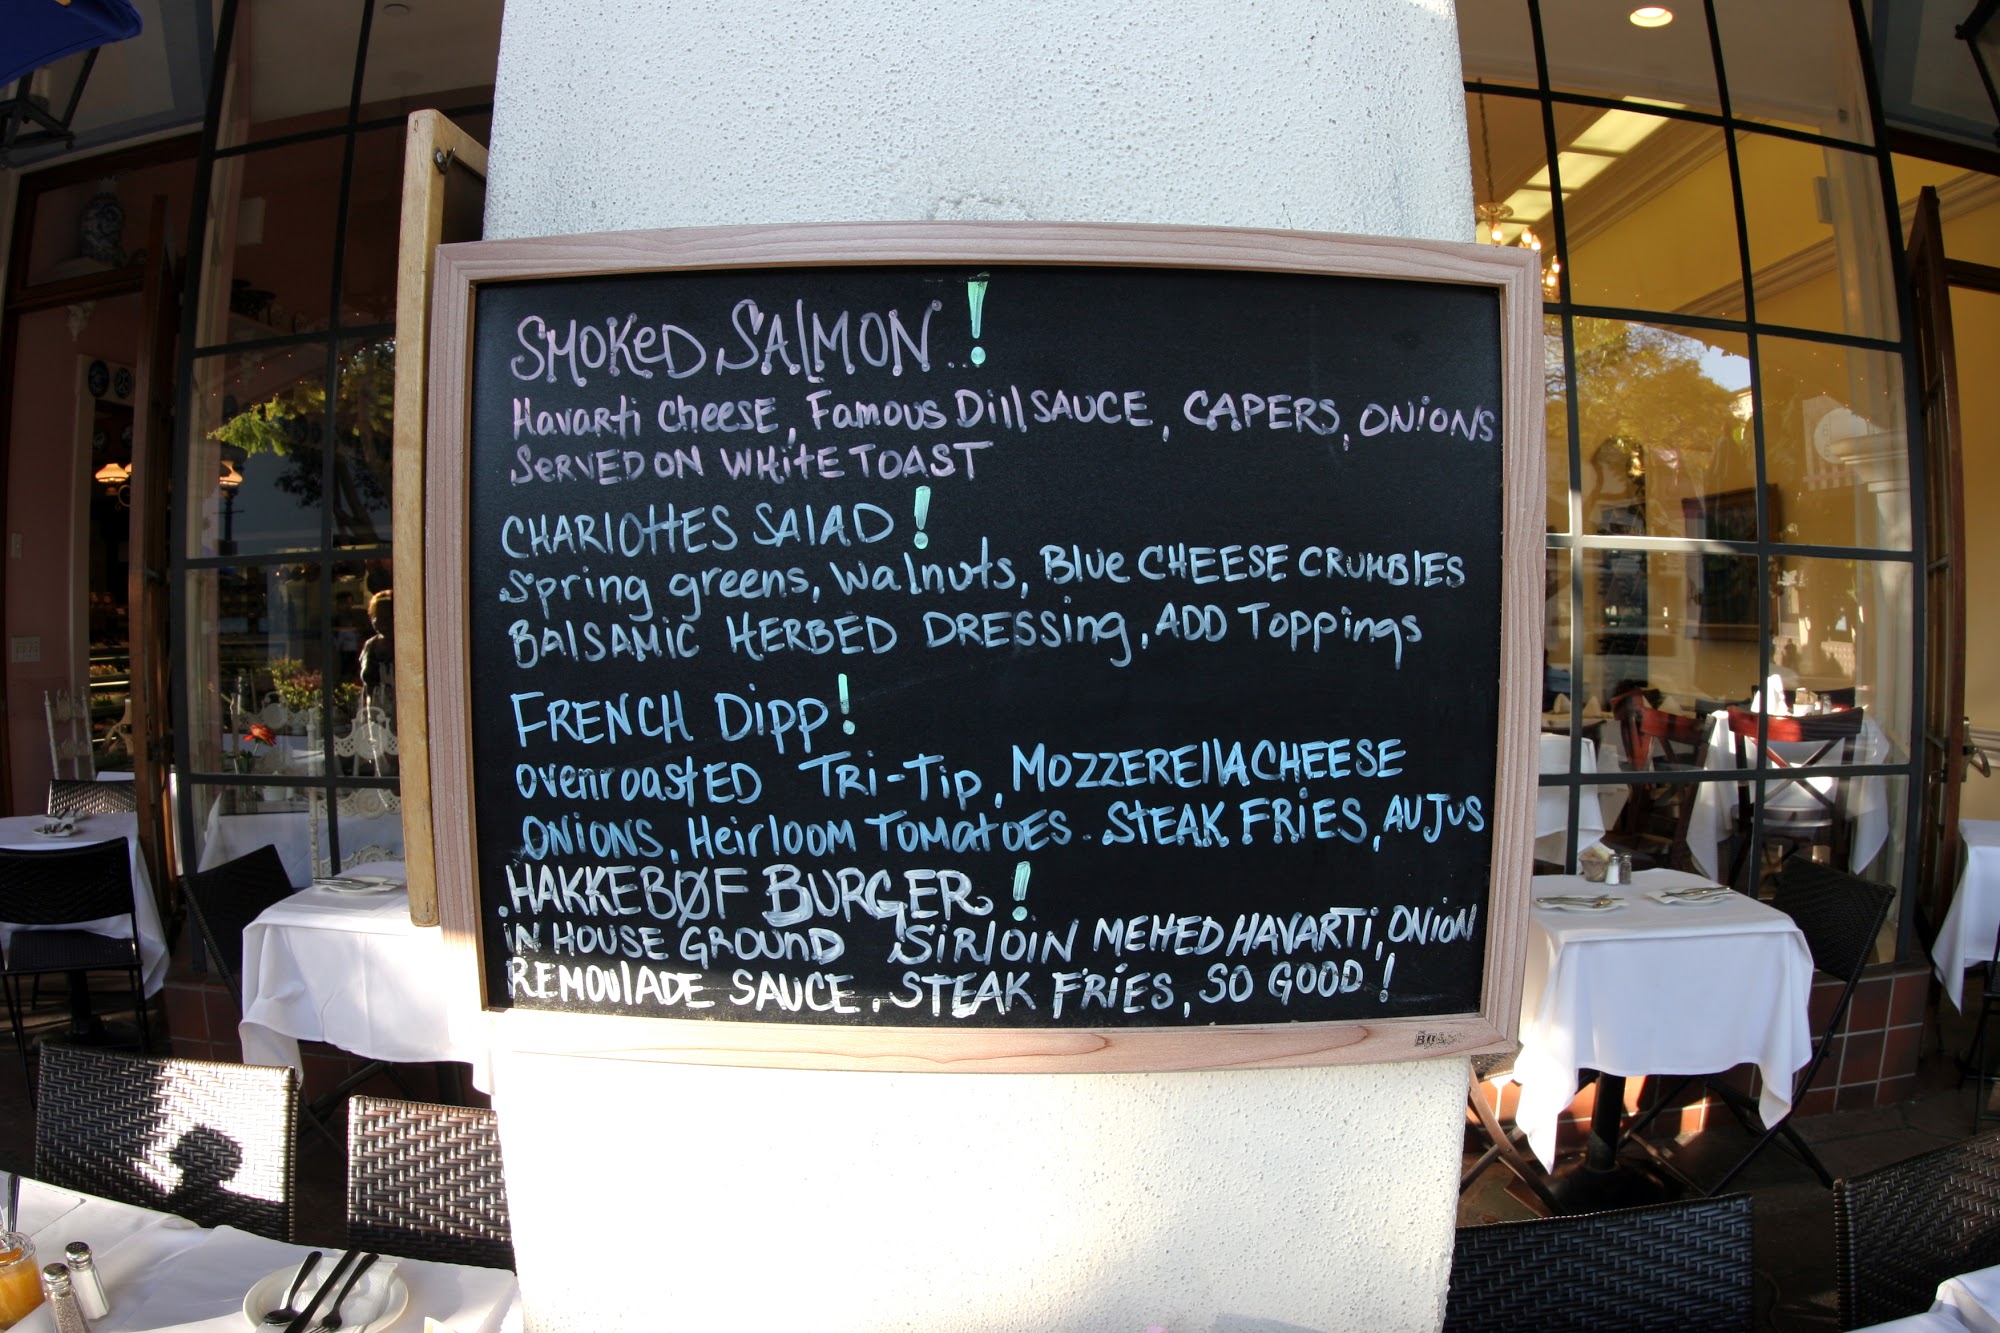 SMOKeD SAlMON...!
Havarti cheeSE, Famous Dill SAUCE, CAPERS, ONiONS
SeRVED ON WHitE TOAST
CHARlOttES SAlAD!
Spring greens, walnuts, Blue CHEESE CRUMBlES
BAlSAMiC HERBED DRESSing, ADD Toppings
FRENCH Dipp!
ovenroastED TRi-Tip, MOZZEREllA CHEESE
ONiONS, Heirloom TOMAtOES. STEAK FRiES, AU JUS
HAKKEBØF BURGER!
iN HOUSE GROUnD SiRlOiN MEHED HAVARTi, ONiON
REMOUlADE SAUCE, STEAK FRiES, SO GOOD!